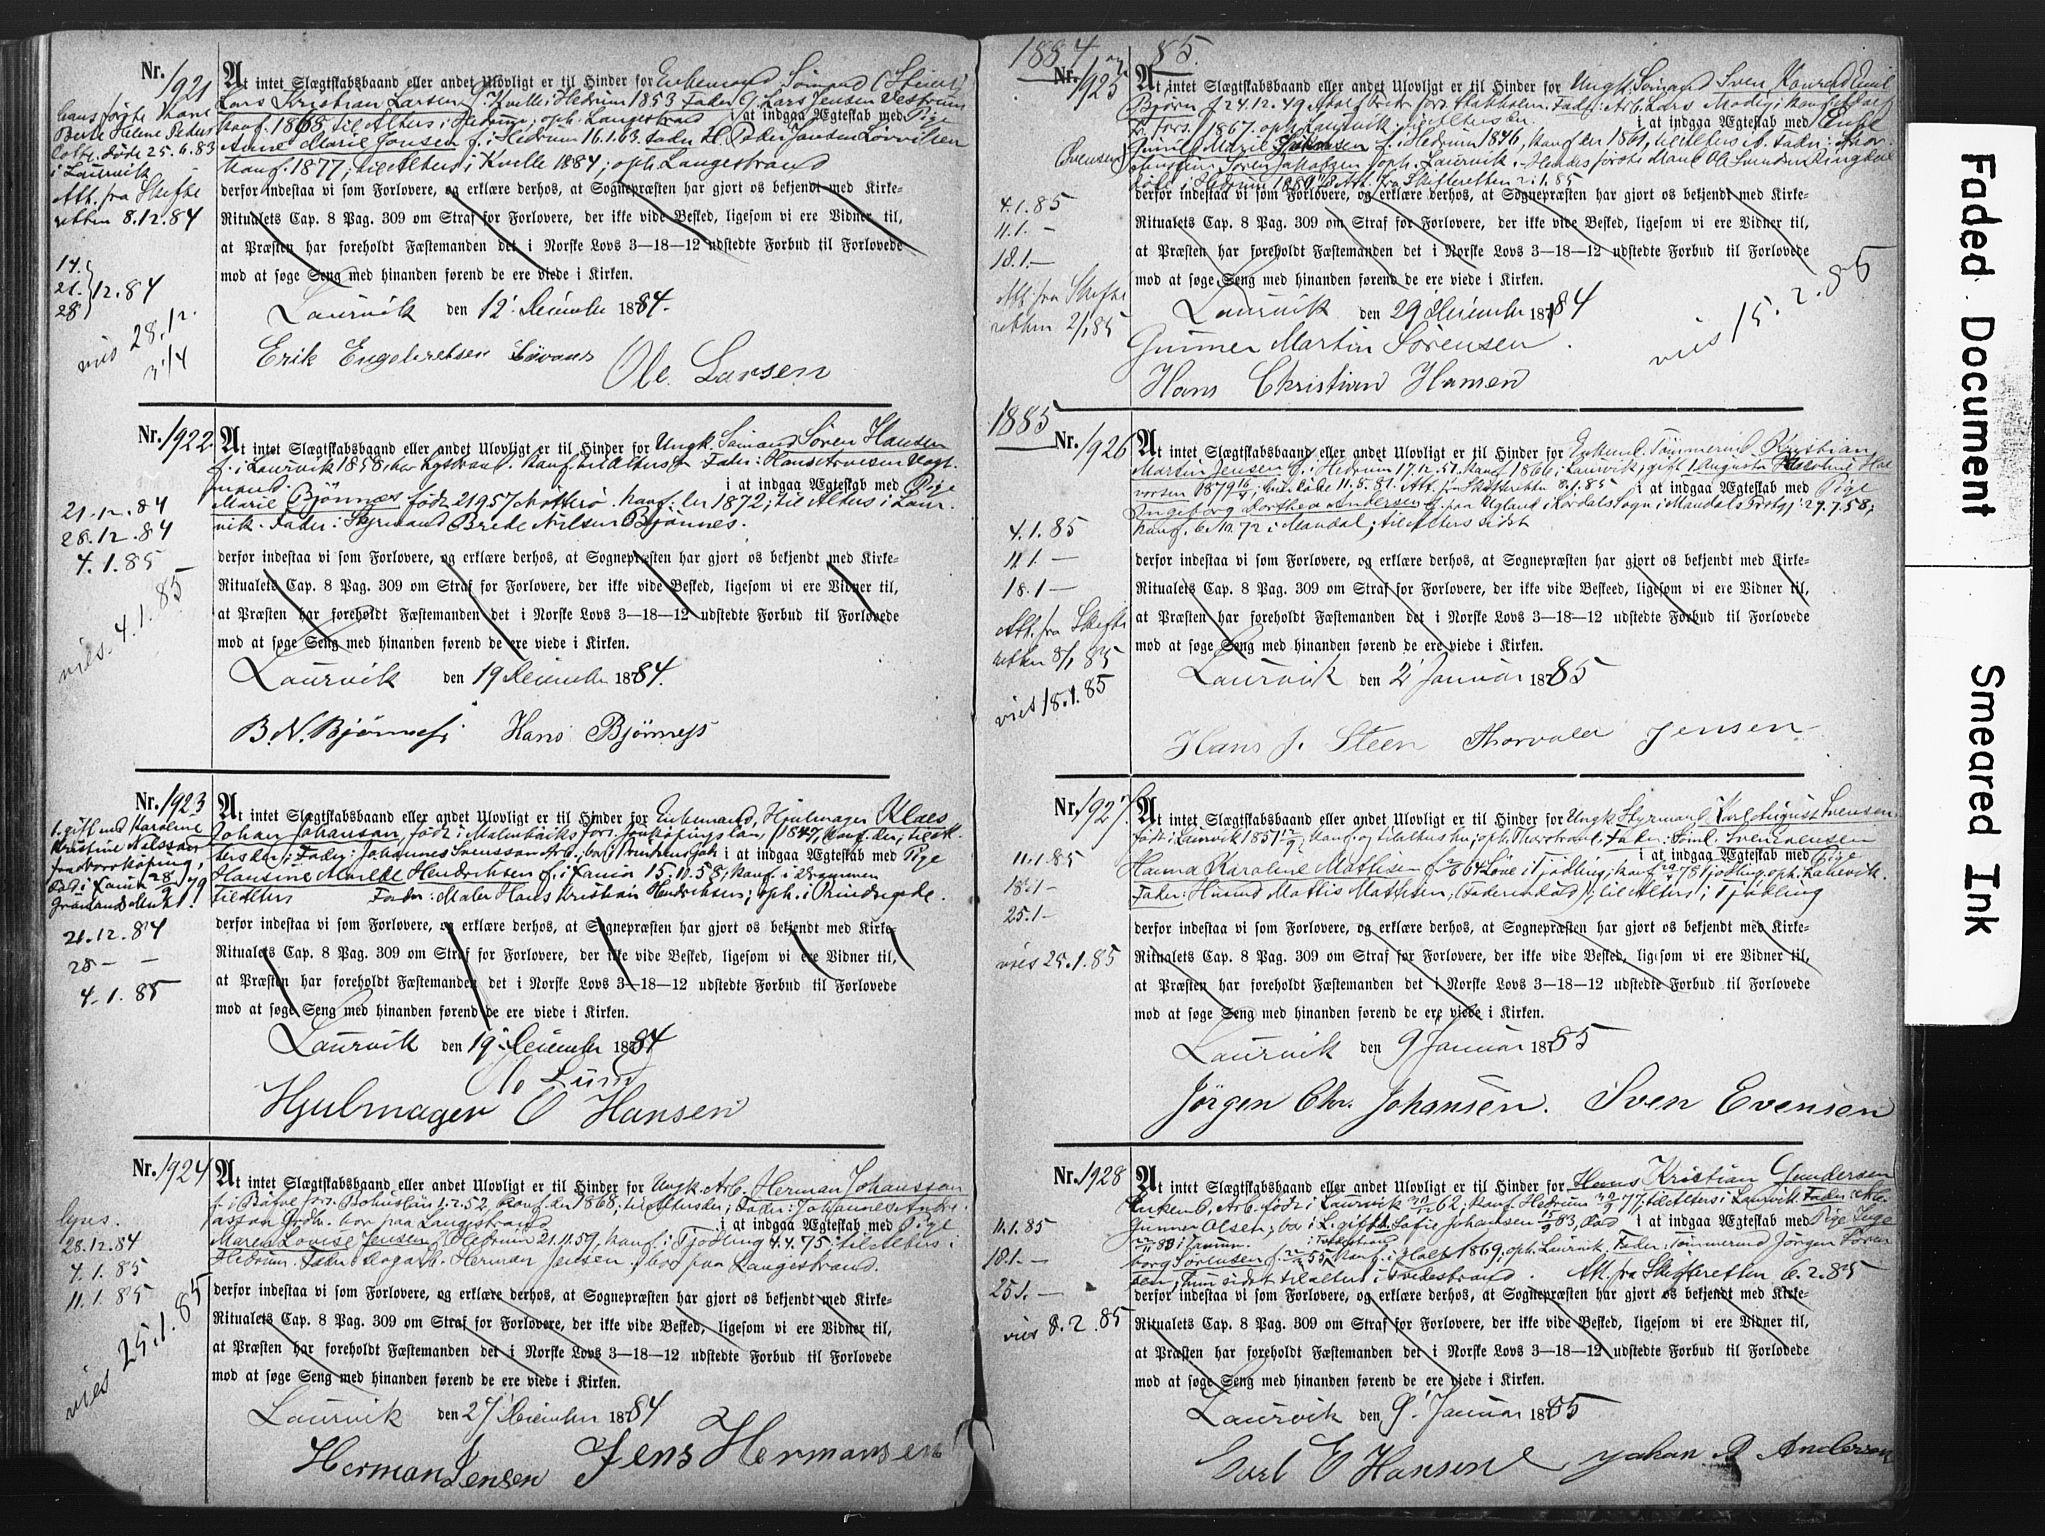 Nr. 1921
At intet Slægtskabsbaand eller andet Ulovligt er til Hinder for Enkemand Sømand
Lars Kristian Larsen f. i Kvelle i Hedrum 1853 Fader G. Lars Jensen Vestrum
Konf. 1868, til Alters i Hedrum, oph. Langestrand i at indgaa Ægteskab med Pige
Anne Marie Jonsen f. i Hedrum 16.1.63 Fader H. Peder Jansen
Konf. 1877; til Alters i Kvelle 1884; oph. Langestrand
hans første Kone
Berte Helene Peders
datter døde 25.6.83
i Laurvik
Att. fra Skifte
retten 8.12.84
14.
21. 12.84
28
vies 28.12.
3 1/4
derfor indestaa vi som Forlovere, og erklære derhos, at Sognepræsten har gjort os bekjendt med Kirke-
Ritualets Cap. 8 Pag. 309 om Straf for Forlovere, der ikke vide Besked, ligesom vi ere Vidner til,
at Præsten har foreholdt Fæstemanden det i Norske Lovs 3—18—12 udstedte Forbud til Forlovede
mod at søge Seng med hinanden førend de ere viede i Kirken.
Laurvik den 12' December 1884.
Erik Engebretsen
Ole Larsen
Nr. 1922
At intet Slægtskabsbaand eller andet Ulovligt er til Hinder for Ungk. Sømand Søren Hansen
f. i Laurvik 1858, Konf. til Alters Fader: Hans
i at indgaa Ægteskab med Pige
Marie Bjønnes født 21 9 57 Konf. 1872; til Alters i Laur-
vik. Fader: Styrmand Brede Nilsen Bjønnes.
21.12.84
28.12.84
4.1.85
vies 4.1.85
derfor indestaa vi som Forlovere, og erklære derhos, at Sognepræsten har gjort os bekjendt med Kirke-
Ritualets Cap. 8 Pag. 309 om Straf for Forlovere, der ikke vide Besked, ligesom vi ere Vidner til,
at Præsten har foreholdt Fæstemanden det i Norske Lovs 3—18—12 udstedte Forbud til Forlovede
mod at søge Seng med hinanden førend de ere viede i Kirken.
Laurvik den 19 December 1884.
B. N. Bjønness Hans Bjønness
Nr. 1923
At intet Slægtskabsbaand eller andet Ulovligt er til Hinder for Enkemand, Hjulmager Klaes
Johan Johansen, født i Malmbäcks fors. Jonkøpings län, 1847, Konf. der; til Al-
ters der; Fader: Johannes Svensson Arb. i at indgaa Ægteskab med Pige
Hansine Mathilde Hendriksen f. i Laurvik 15.11.58, Konf. i Drammen
til Alters Fader: Maler Hans Kristian Hendriksen; oph. i
1. gift med Karoline
Kristine Nilsson
fra Norrköping;
død i Laurvik
21.12.84
28 — —
4.1.85
derfor indestaa vi som Forlovere, og erklære derhos, at Sognepræsten har gjort os bekjendt med Kirke-
Ritualets Cap. 8 Pag. 309 om Straf for Forlovere, der ikke vide Besked, ligesom vi ere Vidner til,
at Præsten har foreholdt Fæstemanden det i Norske Lovs 3—18—12 udstedte Forbud til Forlovede
mod at søge Seng med hinanden førend de ere viede i Kirken.
Laurvik den 19' December 1884
Ole Lund
Hjulmager O Hansen
Nr. 1924
At intet Slægtskabsbaand eller andet Ulovligt er til Hinder for Ungk. Arb. Herman Johansson
f. i Bohuslän 1.2.52, Konf. der 1868, til Alters der; Fader: Johannes Andre-
asson bor paa Langestrand i at indgaa Ægteskab med Pige
Maren Lovise Jensen f. Hedrum 21.11.57, Konf. i Tjødling 4.4.75; til Alters i
Hedrum. Fader: Herman Jensen, bor paa Langestrand.
lyses.
28.12.84
4.1.85
11.1.85
vies 25.1.85
derfor indestaa vi som Forlovere, og erklære derhos, at Sognepræsten har gjort os bekjendt med Kirke-
Ritualets Cap. 8 Pag. 309 om Straf for Forlovere, der ikke vide Besked, ligesom vi ere Vidner til,
at Præsten har foreholdt Fæstemanden det i Norske Lovs 3—18—12 udstedte Forbud til Forlovede
mod at søge Seng med hinanden førend de ere viede i Kirken.
Laurvik den 27' December 1884
Herman Jensen Jens Hermansen
1884 og 85.
Nr. 1925
At intet Slægtskabsbaand eller andet Ulovligt er til Hinder for Ungk. Sømand Sven Konrad Emil
Bjørn f. 24.12.49 Fader: Arb. Lars
1867. oph. Laurvik i at indgaa Ægteskab med Enke
Gunild Marie f. i Hedrum 1846, Konf. der 1861, til Alters Fader:
Søren Jakobsen oph. Laurvik. Hendes første Mand Ole
døde i Hedrum Att. fra Skifteretten 2.1.85
4.1.85
11.1. —
18.1 —
Att. fra Skifte
retten 2/1 85
vies 15.2.85
derfor indestaa vi som Forlovere, og erklære derhos, at Sognepræsten har gjort os bekjendt med Kirke-
Ritualets Cap. 8 Pag. 309 om Straf for Forlovere, der ikke vide Besked, ligesom vi ere Vidner til,
at Præsten har foreholdt Fæstemanden det i Norske Lovs 3—18—12 udstedte Forbud til Forlovede
mod at søge Seng med hinanden førend de ere viede i Kirken.
Laurvik den 29 December 1884
Gunner Martin Sørensen.
Hans Christian Hansen
1885
Nr. 1926
At intet Slægtskabsbaand eller andet Ulovligt er til Hinder for Enkem. Tømmermd. Kristian
Martin Jensen f. i Hedrum 17.12.51 Konf. 1866 i Laurvik, gift 1 Augusta Karoline Hal-
vorsen 1879 døde 11.5.81. Att. fra Skifteretten 8.1.85 i at indgaa Ægteskab med Pige
Ingeborg Dorthea Andersen f. paa Ugland i Sogn i Mandals Prstgj: 29.7.58;
Konf. 6.10.72 i Mandal; til Alters sidst
4.1.85
11.1. —
18.1 —
Att. fra Skifte
retten 8/1 85
vies 18.1.85
derfor indestaa vi som Forlovere, og erklære derhos, at Sognepræsten har gjort os bekjendt med Kirke-
Ritualets Cap. 8 Pag. 309 om Straf for Forlovere, der ikke vide Besked, ligesom vi ere Vidner til,
at Præsten har foreholdt Fæstemanden det i Norske Lovs 3—18—12 udstedte Forbud til Forlovede
mod at søge Seng med hinanden førend de ere viede i Kirken.
Laurvik den 2' Januar 1885
Hans J. Steen Thorvald Jensen
Nr. 1927.
At intet Slægtskabsbaand eller andet Ulovligt er til Hinder for Ungk. Styrmand Karl August Svensen
født i Laurvik 1857 Konf. og til Alters Fader: Søm. Sven Evensen
i at indgaa Ægteskab med Pige
Hanna Karoline Mathisen f. 64 i Tjødling; Konf. 78 Tjødling, oph. Laurvik.
Fader: Husmd Mattis Mathisen, (Faderen død); til Alters i Tjødling
11.1.85
18.1 —
25.1 —
vies 25.1.85
derfor indestaa vi som Forlovere, og erklære derhos, at Sognepræsten har gjort os bekjendt med Kirke-
Ritualets Cap. 8 Pag. 309 om Straf for Forlovere, der ikke vide Besked, ligesom vi ere Vidner til,
at Præsten har foreholdt Fæstemanden det i Norske Lovs 3—18—12 udstedte Forbud til Forlovede
mod at søge Seng med hinanden førend de ere viede i Kirken.
Laurvik den 9' Januar 1885
Jørgen Chr. Johansen. Sven Evensen
Nr. 1928
At intet Slægtskabsbaand eller andet Ulovligt er til Hinder for Hans Kristian Gundersen
Enkemd, Arb. født i Laurvik 62; Konf. Hedrum 77, til Alters i Laurvik. Fader:
Gunner Olsen, bor i L. gift 1. Sofie Johansen 83, død i at indgaa Ægteskab med Pige Inge
borg Sørensen f. 55, Konf. i Holt 1869, oph. Laurvik. Fader: Tømmermd Jørgen Søren
sen, hun sidst til Alters i Tvedestrand. Att. fra Skifteretten 6.2.85
11.1.85
18.1. —
25.1. —
vies 8.2.85
derfor indestaa vi som Forlovere, og erklære derhos, at Sognepræsten har gjort os bekjendt med Kirke-
Ritualets Cap. 8 Pag. 309 om Straf for Forlovere, der ikke vide Besked, ligesom vi ere Vidner til,
at Præsten har foreholdt Fæstemanden det i Norske Lovs 3—18—12 udstedte Forbud til Forlovede
mod at søge Seng med hinanden førend de ere viede i Kirken.
Laurvik den 9' Januar 1885
Carl E Hansen Johan A Anderson
Faded Document
Smeared Ink